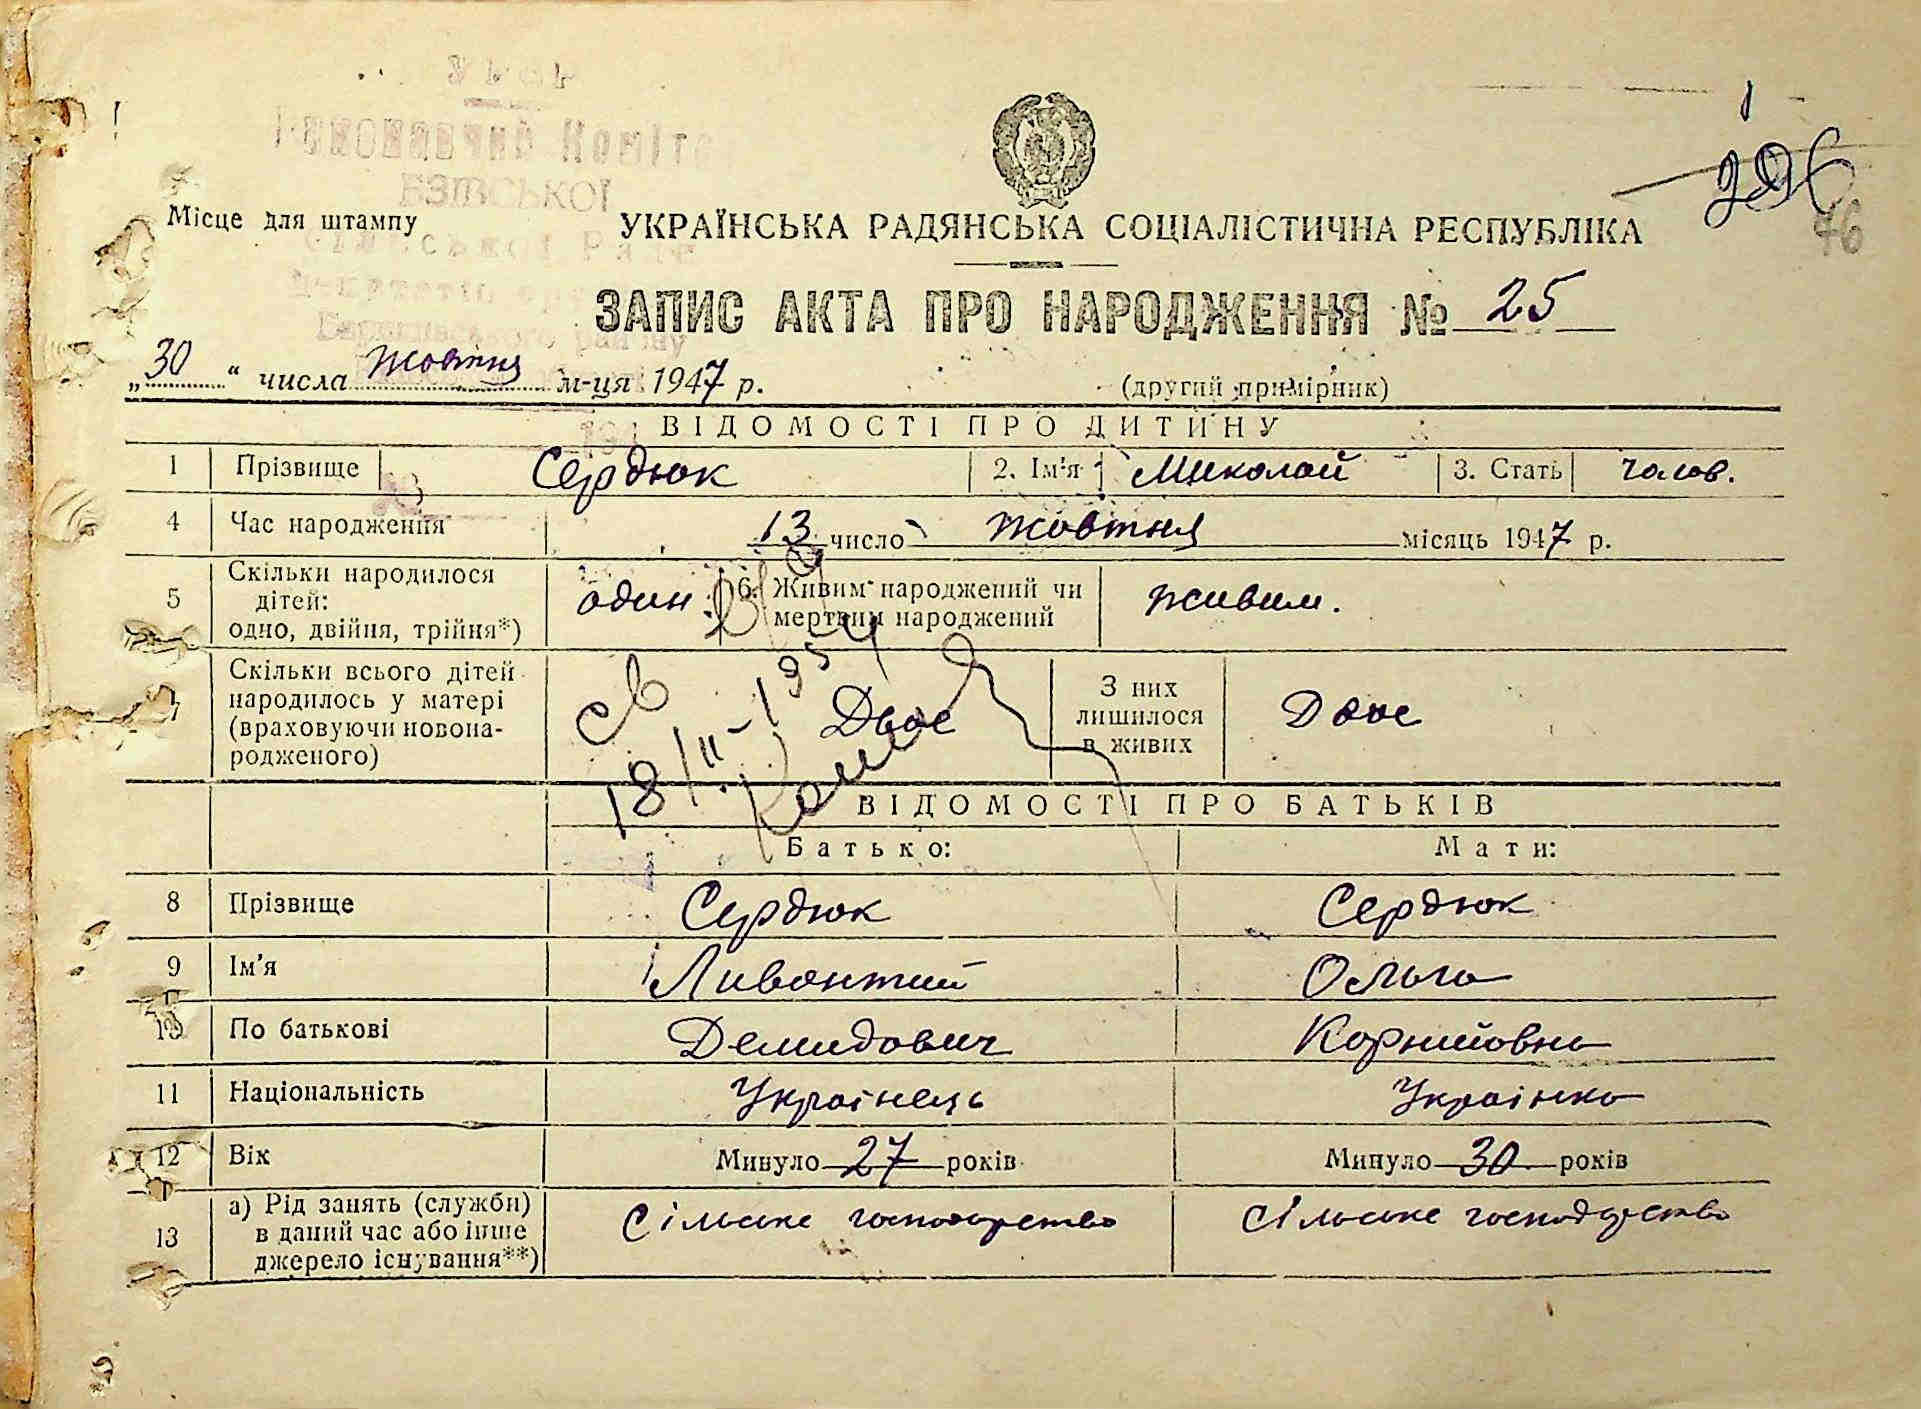 У Р С Р
Виконавчий Коміте
Місце для штампу
УКРАЇНСЬКА РАДЯНСЬКА СОЦІАЛІСТИЧНА РЕСПУБЛІКА
76
ЗАПИС АКТА ПРО НАРОДЖЕННЯ № 25
„30“ числа жовтня м-ця 1947 р. (другий примірник)
ВІДОМОСТІ ПРО ДИТИНУ
1 Прізвище Сердюк 2. Ім'я Миколай 3. Стать чолов.
4 Час народження 13 число жовтня місяць 1947 р.
5 Скільки народилося дітей: одно, двійня, трійня*) один 6. Живим народжений чи мертвим народжений живим.
7 Скільки всього дітей народилось у матері (враховуючи новонародженого) Двоє З них лишилося в живих Двоє
св
18/II-1954
ВІДОМОСТІ ПРО БАТЬКІВ
Батько: Мати:
8 Прізвище Сердюк Сердюк
9 Ім'я Ливонтий Ольга
10 По батькові Демидович Корнийовна
11 Національність Українець Українка
12 Вік Минуло 27 років Минуло 30 років
13 а) Рід занять (служби) в даний час або інше джерело існування**) Сільське господарство Сільське господарство